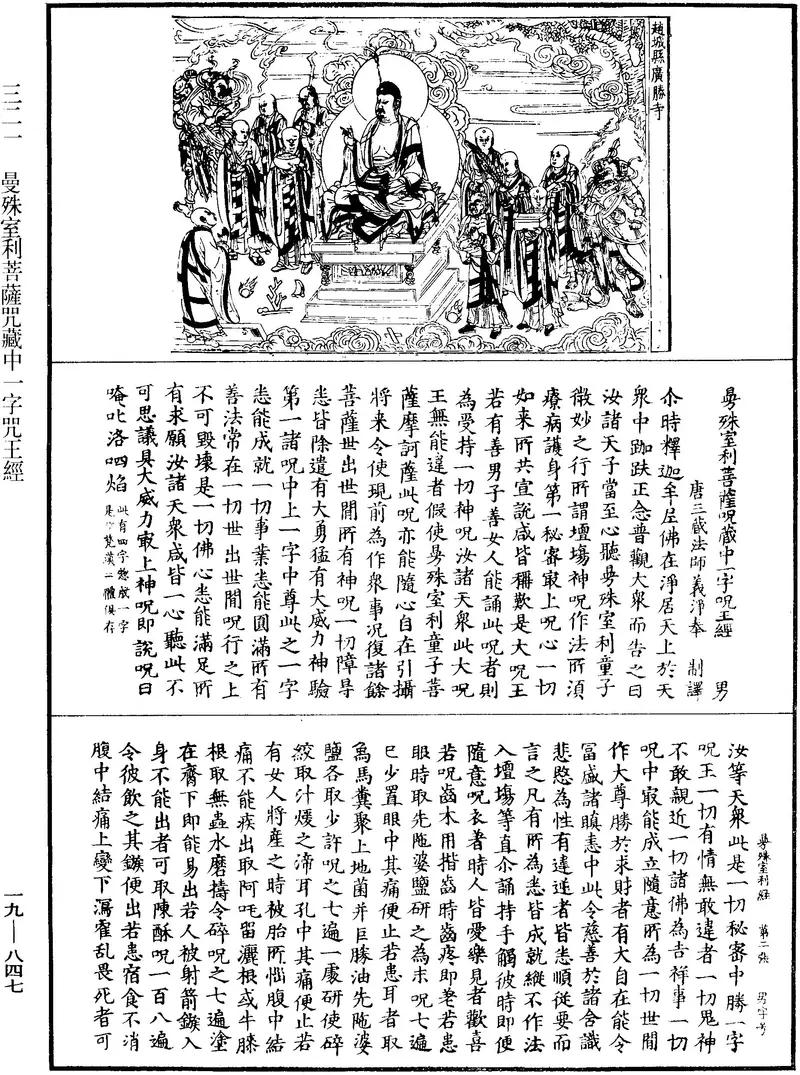 三二一　曼殊室利菩薩咒藏中一字咒王經
趙城縣廣勝寺
曼殊室利菩薩呪藏中一字呪王經　男
唐三藏法師義淨奉　制譯
尒時釋迦牟尼佛在淨居天上於天
衆中跏趺正念普觀大衆而告之曰
汝諸天子當至心聽曼殊室利童子
微妙之行所謂壇塲神呪作法所須
療病護身第一秘密㝡上呪心一切
如來所共宣說咸皆稱歎是大呪王
若有善男子善女人能誦此呪者則
為受持一切神呪汝諸天衆此大呪
王無能違者假使曼殊室利童子菩
薩摩訶薩此呪亦能隨心自在引攝
將来令使現前為作衆事况復諸餘
菩薩世出世間所有神呪一切障㝵
悉皆除遣有大勇猛有大威力神驗
第一諸呪中上一字中尊此之一字
悉能成就一切事業悉能圓滿所有
善法常在一切世出世間呪行之上
不可毀壞是一切佛心悉能滿足所
有求願汝諸天衆咸皆一心聽此不
可思議具大威力㝡上神呪即說呪曰
唵叱洛呬焰　此有四字惣成一字是以梵漢二體俱存
曼殊室利經　第二張　男字号
汝等天衆此是一切秘密中勝一字
呪王一切有情無敢違者一切鬼神
不敢親近一切諸佛為吉祥事一切
呪中㝡能成立隨意所為一切世間
作大尊勝於求財者有大自在能令
冨盛諸瞋恚中此令慈善於諸含識
悲愍為性有違逆者皆悉順從要而
言之凡有所為悉皆成就縱不作法
入壇塲等直尒誦持手觸彼時即便
隨意呪衣著時人皆愛樂見者歡喜
若呪齒木用揩齒時齒疼即差若患
眼時取先陁婆鹽研之為末呪七遍
已少置眼中其痛便止若患耳者取
鳥馬糞聚上地菌并巨勝油先陁婆
鹽各取少許呪之七遍一處研使碎
絞取汁煖之渧耳孔中其痛便止若
有女人將產之時被胎所惱腹中結
痛不能疾出取阿吒留灑根或牛膝
根取無蟲水磨擣令碎呪之七遍塗
在齊下即能易出若人被射箭鏃入
身不能出者可取陳酥呪一百八遍
令彼飲之其鏃便出若患宿食不消
腹中結痛上變下瀉霍亂畏死者可
一九—八四七